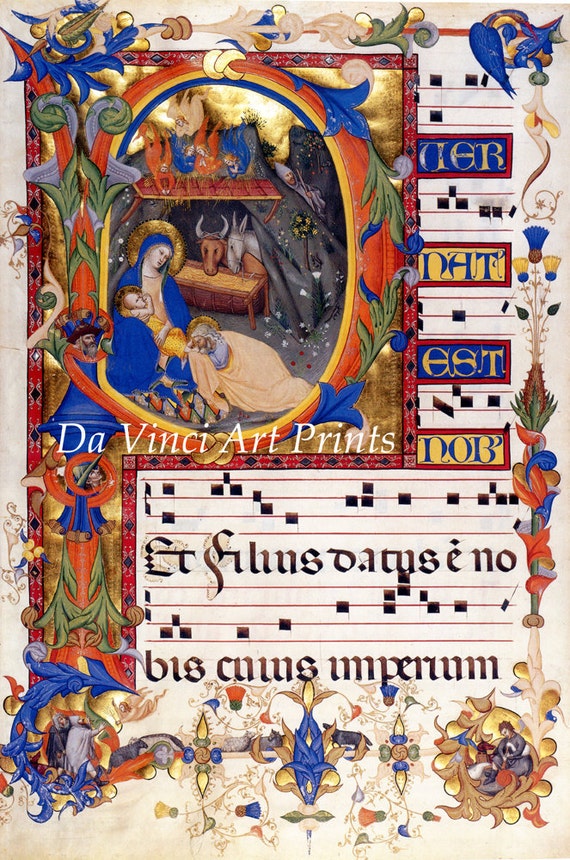 UER
NAT
EST
NOB
Da Vinci Art Prints
Et Filius datus ē no
bis cuius imperium